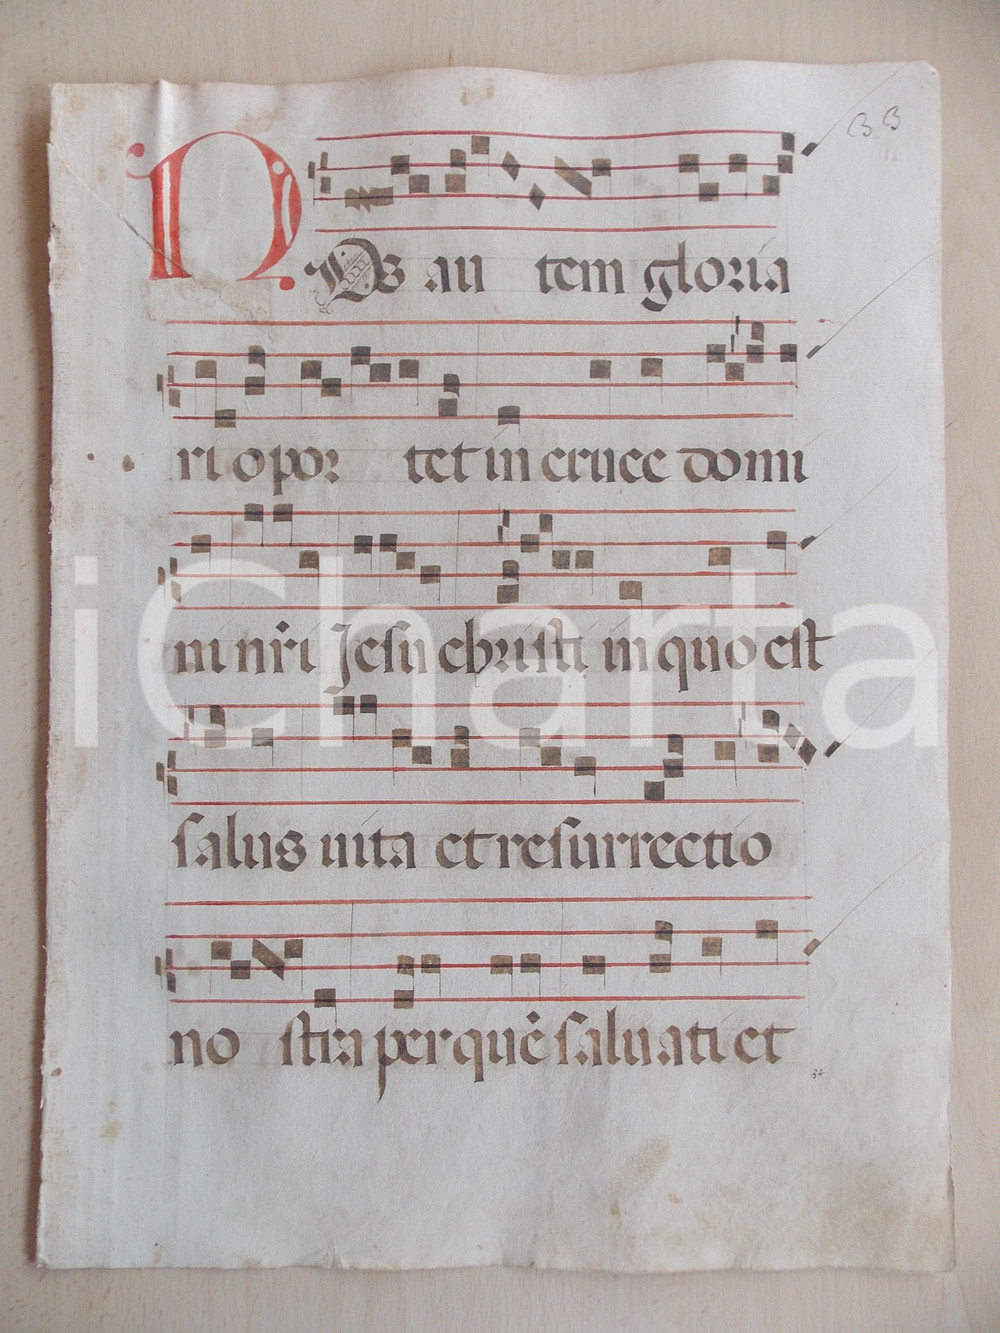 B B
NOS au tem gloria
ri opor tet in cruce domi
ni nr̃i Jesu christi in quo est
salus uita et resurrectio
no stra per quẽ saluati et
34
iCharta